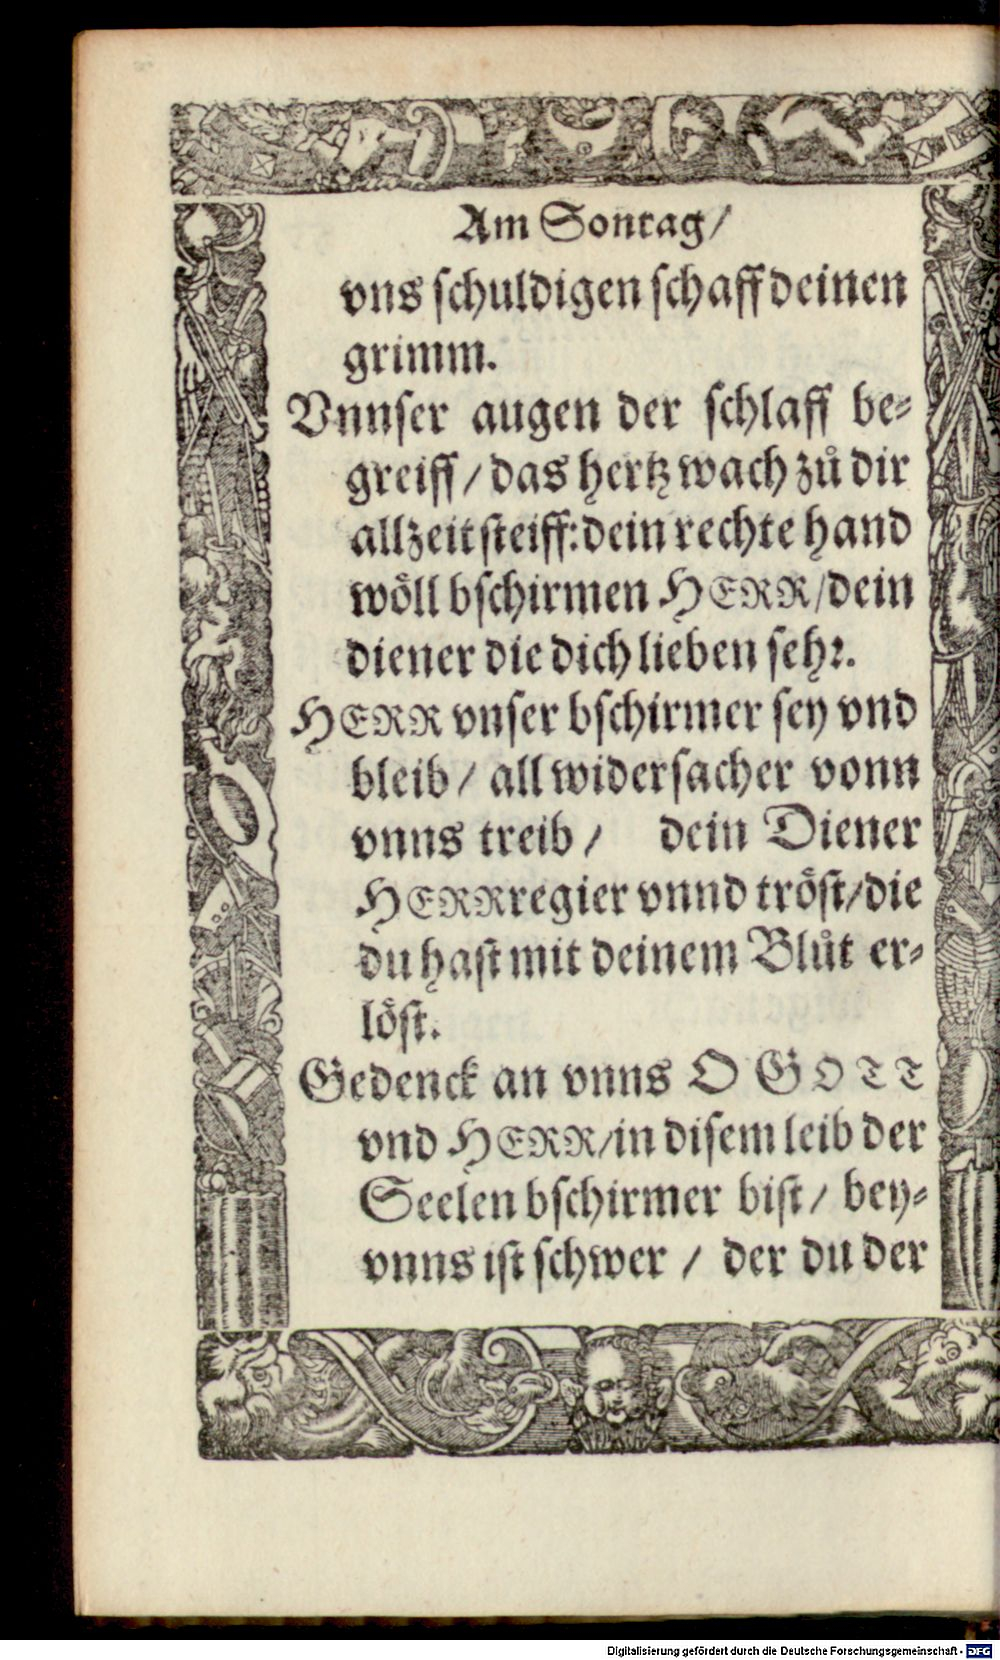 Am Sontag/
vns schuldigen schaff deinen
grimm.
Vnnser augen der schlaff be-
greiff/ das hertz wach zů dir
allzeit steiff: dein rechte hand
wöll bschirmen HERR/dein
diener die dich lieben sehr.
HERR vnser bschirmer sey vnd
bleib/ all widersacher vonn
vnns treib/ dein Diener
HERR regier vnnd tröst/die
du hast mit deinem Blůt er-
löst.
Gedenck an vnns O GOTT
vnd HERR/in disem leib der
Seelen bschirmer bist/ bey-
vnns ist schwer/ der du der
Digitalisierung gefördert durch die Deutsche Forschungsgemeinschaft - DFG